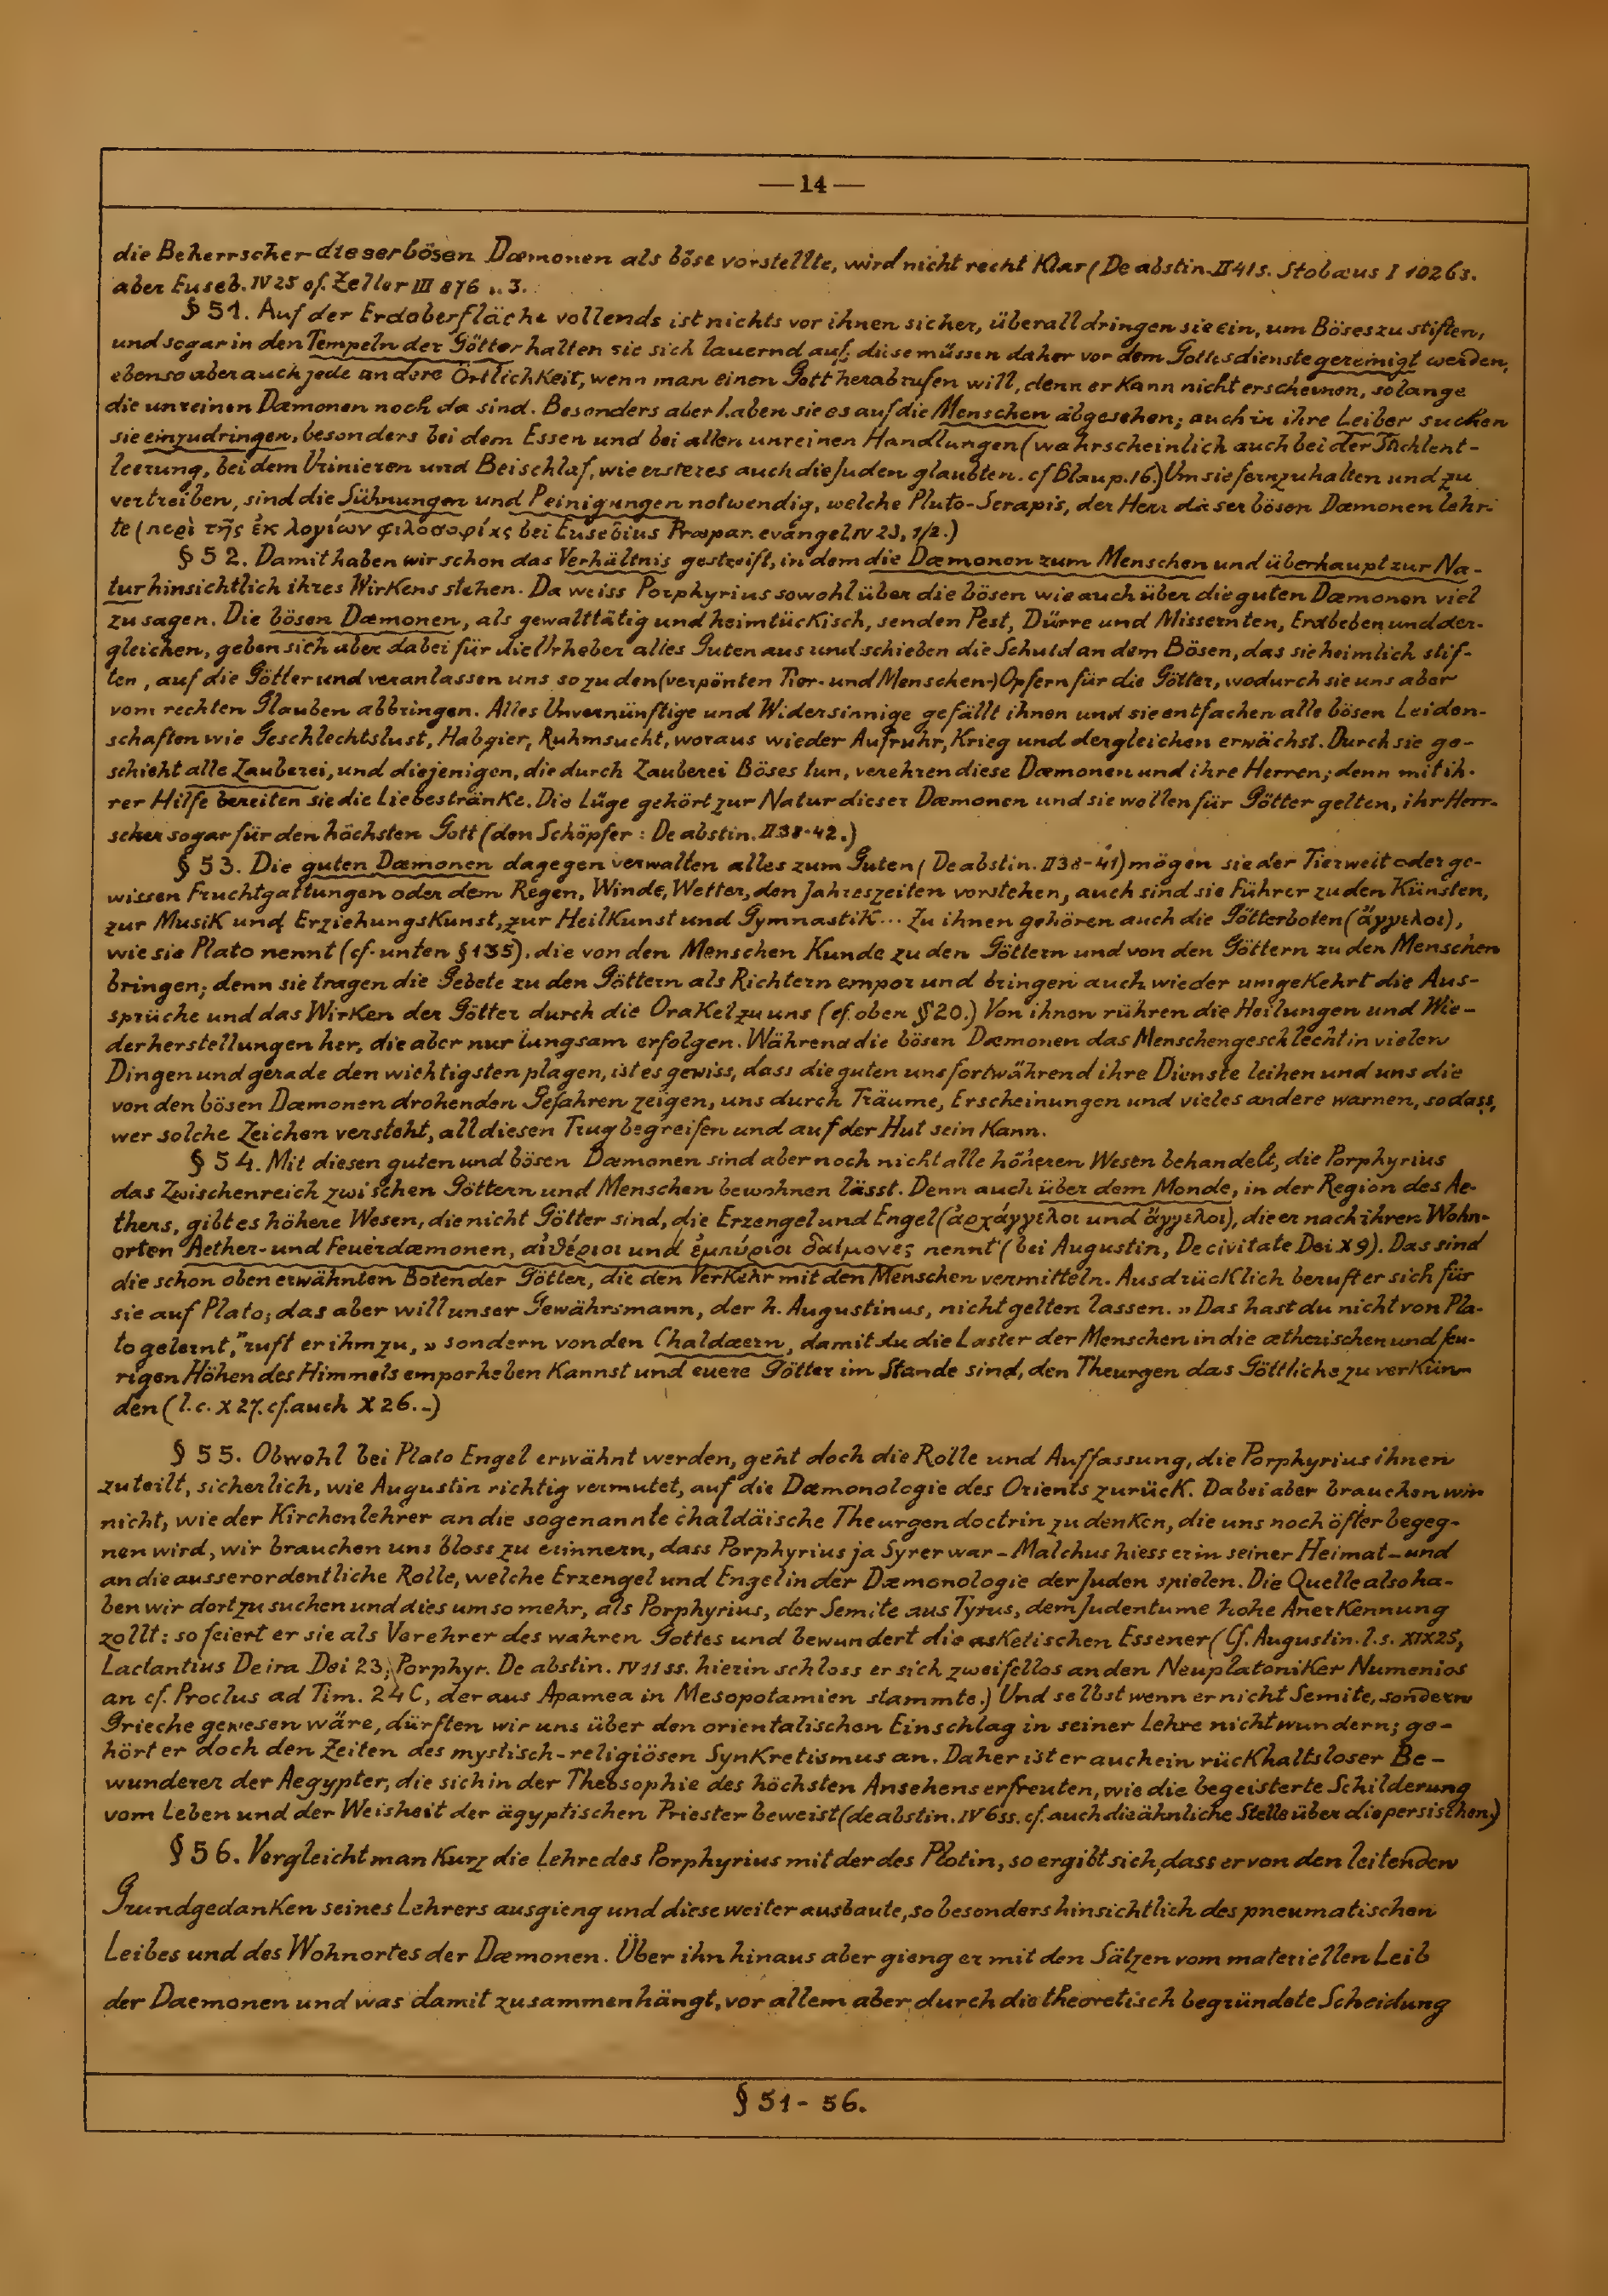 — 14 —
die Beherrscher dieser bösen Dæmonen als böse vorstellte, wird nicht recht Klar (De abstin. II 41 s. Stobæus I 1026 s.
aber Euseb. IV 25 cf. Zeller III 876 n. 3.
§ 51. Auf der Erdoberfläche vollends ist nichts vor ihnen sicher, überall dringen sie ein, um Böses zu stiften,
und sogar in den Tempeln der Götter halten sie sich lauernd auf; diese müssen daher vor dem Gottesdienste gereinigt werden,
ebenso aber auch jede andere Örtlichkeit, wenn man einen Gott herabrufen will, denn er kann nicht erscheinen, solange
die unreinen Dæmonen noch da sind. Besonders aber haben sie es auf die Menschen abgesehen; auch in ihre Leiber suchen
sie einzudringen, besonders bei dem Essen und bei allen unreinen Handlungen (wahrscheinlich auch bei der
leerung, bei dem Urinieren und Beischlaf, wie ersteres auch die Juden glaubten. cf Blau p. 16.) Um sie fernzuhalten und zu
vertreiben, sind die Sühnungen und Peinigungen notwendig, welche Pluto-Serapis, der Herr dieser bösen Dæmonen lehr-
te (περὶ τῆς ἐκ λογίων φιλοσοφίας bei Eusebius Præpar. evangel. IV 23, 1/2.)
§ 52. Damit haben wir schon das Verhältnis gestreift, in dem die Dæmonen zum Menschen und überhaupt zur Na-
tur hinsichtlich ihres Wirkens stehen. Da weiss Porphyrius sowohl über die bösen wie auch über die guten Dæmonen viel
zu sagen. Die bösen Dæmonen, als gewalttätig und heimtückisch, senden Pest, Dürre und Missernten, Erdbeben und der-
gleichen, geben sich aber dabei für die Urheber alles Guten aus und schieben die Schuld an dem Bösen, das sie heimlich stif-
ten, auf die Götter und veranlassen uns so zu den (verpönten Tier- und Menschen-) Opfern für die Götter, wodurch sie uns aber
vom rechten Glauben abbringen. Alles Unvernünftige und Widersinnige gefällt ihnen und sie entfachen alle bösen Leiden-
schaften wie Geschlechtslust, Habgier, Ruhmsucht, woraus wieder Aufruhr, Krieg und dergleichen erwächst. Durch sie ge-
schieht alle Zauberei, und diejenigen, die durch Zauberei Böses tun, verehren diese Dæmonen und ihre Herren; denn mit ih-
rer Hilfe bereiten sie die Liebestränke. Die Lüge gehört zur Natur dieser Dæmonen und sie wollen für Götter gelten, ihr Herr-
scher sogar für den höchsten Gott (den Schöpfer: De abstin. II 38-42.)
§ 53. Die guten Dæmonen dagegen verwalten alles zum Guten (De abstin. II 38-41) mögen sie der Tierwelt oder ge-
wissen Fruchtgattungen oder dem Regen, Winde, Wetter, den Jahreszeiten vorstehen, auch sind sie Führer zu den Künsten,
zur Musik und Erziehungskunst, zur Heilkunst und Gymnastik... Zu ihnen gehören auch die Götterboten (ἄγγελοι),
wie sie Plato nennt (cf. unten § 135), die von den Menschen Kunde zu den Göttern und von den Göttern zu den Menschen
bringen; denn sie tragen die Gebete zu den Göttern als Richtern empor und bringen auch wieder umgekehrt die Aus-
sprüche und das Wirken der Götter durch die Orakel zu uns (cf. oben § 20.) Von ihnen rühren die Heilungen und Wie-
derherstellungen her, die aber nur langsam erfolgen. Während die bösen Dæmonen das Menschengeschlecht in vielen
Dingen und gerade den wichtigsten plagen, ist es gewiss, dass die guten uns fortwährend ihre Dienste leihen und uns die
von den bösen Dæmonen drohenden Gefahren zeigen, uns durch Träume, Erscheinungen und vieles andere warnen, sodass,
wer solche Zeichen versteht, all diesen Trug begreifen und auf der Hut sein kann.
§ 54. Mit diesen guten und bösen Dæmonen sind aber noch nicht alle höheren Wesen behandelt, die Porphyrius
das Zwischenreich zwischen Göttern und Menschen bewohnen lässt. Denn auch über dem Monde, in der Region des Ae-
thers, gibt es höhere Wesen, die nicht Götter sind, die Erzengel und Engel (ἀρχάγγελοι und ἄγγελοι), die er nach ihren Wohn-
orten Aether- und Feuerdæmonen, αἰθέριοι und ἐμπύριοι δαίμονες nennt (bei Augustin, De civitate Dei X 9). Das sind
die schon oben erwähnten Boten der Götter, die den Verkehr mit den Menschen vermitteln. Ausdrücklich beruft er sich für
sie auf Plato; das aber will unser Gewährsmann, der h. Augustinus, nicht gelten lassen. » Das hast du nicht von Pla-
to gelernt," ruft er ihm zu, » sondern von den Chaldæern, damit du die Laster der Menschen in die ætherischen und feu-
rigen Höhen des Himmels emporheben kannst und euere Götter im Stande sind, den Theurgen das Göttliche zu verkün-
den (l. c. X 27. cf. auch X 26.-)
§ 55. Obwohl bei Plato Engel erwähnt werden, geht doch die Rolle und Auffassung, die Porphyrius ihnen
zuteilt, sicherlich, wie Augustin richtig vermutet, auf die Dæmonologie des Orients zurück. Dabei aber brauchen wir
nicht, wie der Kirchenlehrer an die sogenannte chaldäische Theurgendoctrin zu denken, die uns noch öfter begeg-
nen wird, wir brauchen uns bloss zu erinnern, dass Porphyrius ja Syrer war - Malchus hiess er in seiner Heimat - und
an die ausserordentliche Rolle, welche Erzengel und Engel in der Dæmonologie der Juden spielen. Die Quelle also ha-
ben wir dort zu suchen und dies umso mehr, als Porphyrius, der Semite aus Tyrus, dem Judentume hohe Anerkennung
zollt: so feiert er sie als Verehrer des wahren Gottes und bewundert die asketischen Essener (Cf. Augustin. l. s. XIX 25,
Lactantius De ira Dei 23, Porphyr. De abstin. IV 11 ss. hierin schloss er sich zweifellos an den Neuplatoniker Numenios
an cf. Proclus ad Tim. 24 C, der aus Apamea in Mesopotamien stammte.) Und selbst wenn er nicht Semite, sondern
Grieche gewesen wäre, dürften wir uns über den orientalischen Einschlag in seiner Lehre nicht wundern; ge-
hört er doch den Zeiten des mystisch-religiösen Synkretismus an. Daher ist er auch ein rückhaltsloser Be-
wunderer der Aegypter, die sich in der Theosophie des höchsten Ansehens erfreuten, wie die begeisterte Schilderung
vom Leben und der Weisheit der ägyptischen Priester beweist (de abstin. IV 6 ss. cf. auch die ähnliche Stelle über die persischen.)
§ 56. Vergleicht man kurz die Lehre des Porphyrius mit der des Plotin, so ergibt sich, dass er von den leitenden
Grundgedanken seines Lehrers ausgieng und diese weiter ausbaute, so besonders hinsichtlich des pneumatischen
Leibes und des Wohnortes der Dæmonen. Über ihn hinaus aber gieng er mit den Sätzen vom materiellen Leib
der Daemonen und was damit zusammenhängt, vor allem aber durch die theoretisch begründete Scheidung
§ 51 - 56.